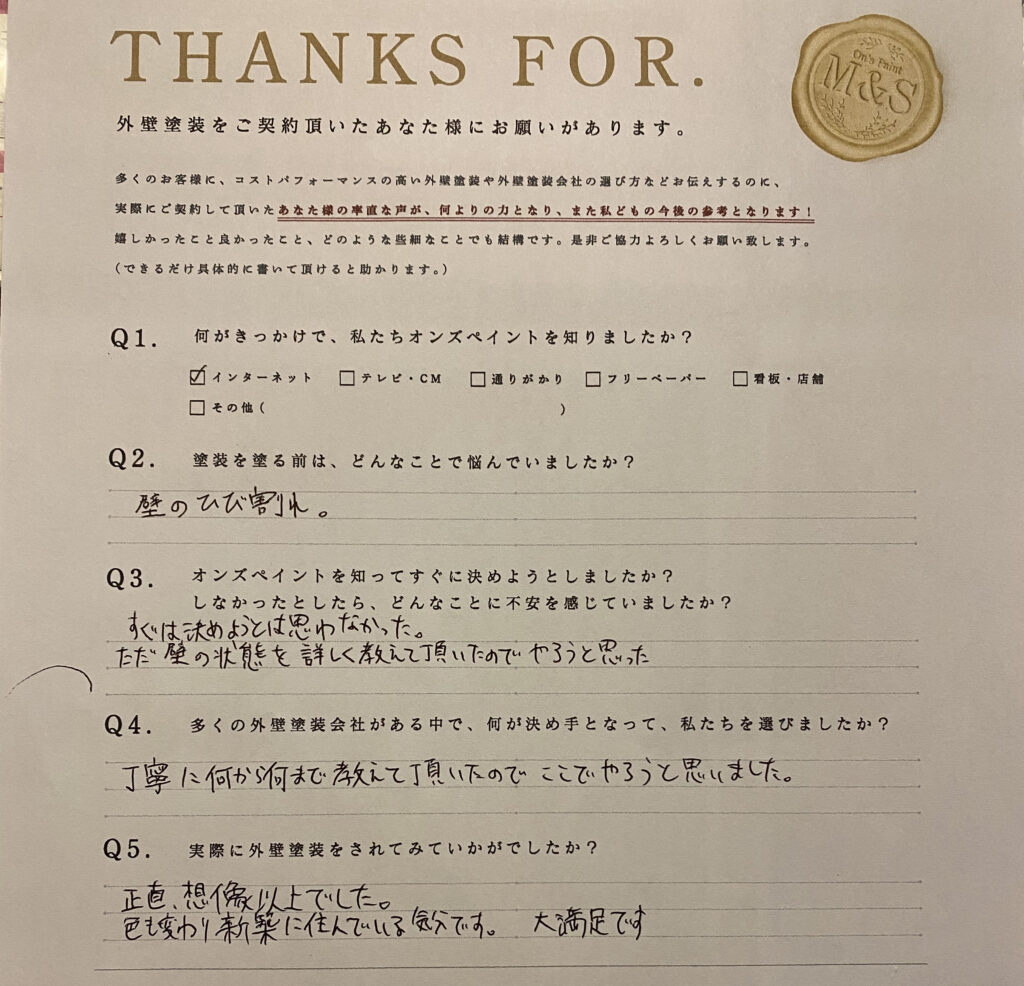 THANKS FOR.
On's Paint
M&S
外壁塗装をご契約頂いたあなた様にお願いがあります。
多くのお客様に、コストパフォーマンスの高い外壁塗装や外壁塗装会社の選び方などお伝えするのに、
実際にご契約して頂いたあなた様の率直な声が、何よりの力となり、また私どもの今後の参考となります！
嬉しかったこと良かったこと、どのような些細なことでも結構です。是非ご協力よろしくお願い致します。
（できるだけ具体的に書いて頂けると助かります。）
Q1. 何がきっかけで、私たちオンズペイントを知りましたか？
☑インターネット □テレビ・CM □通りがかり □フリーペーパー □看板・店舗
□その他（ ）
Q2. 塗装を塗る前は、どんなことで悩んでいましたか？
壁のひび割れ。
Q3. オンズペイントを知ってすぐに決めようとしましたか？
しなかったとしたら、どんなことに不安を感じていましたか？
すぐは決めようとは思わなかった。
ただ壁の状態を詳しく教えて頂いたのでやろうと思った
Q4. 多くの外壁塗装会社がある中で、何が決め手となって、私たちを選びましたか？
丁寧に何から何まで教えて頂いたのでここでやろうと思いました。
Q5. 実際に外壁塗装をされてみていかがでしたか？
正直、想像以上でした。
色も変わり新築に住んでいる気分です。 大満足です